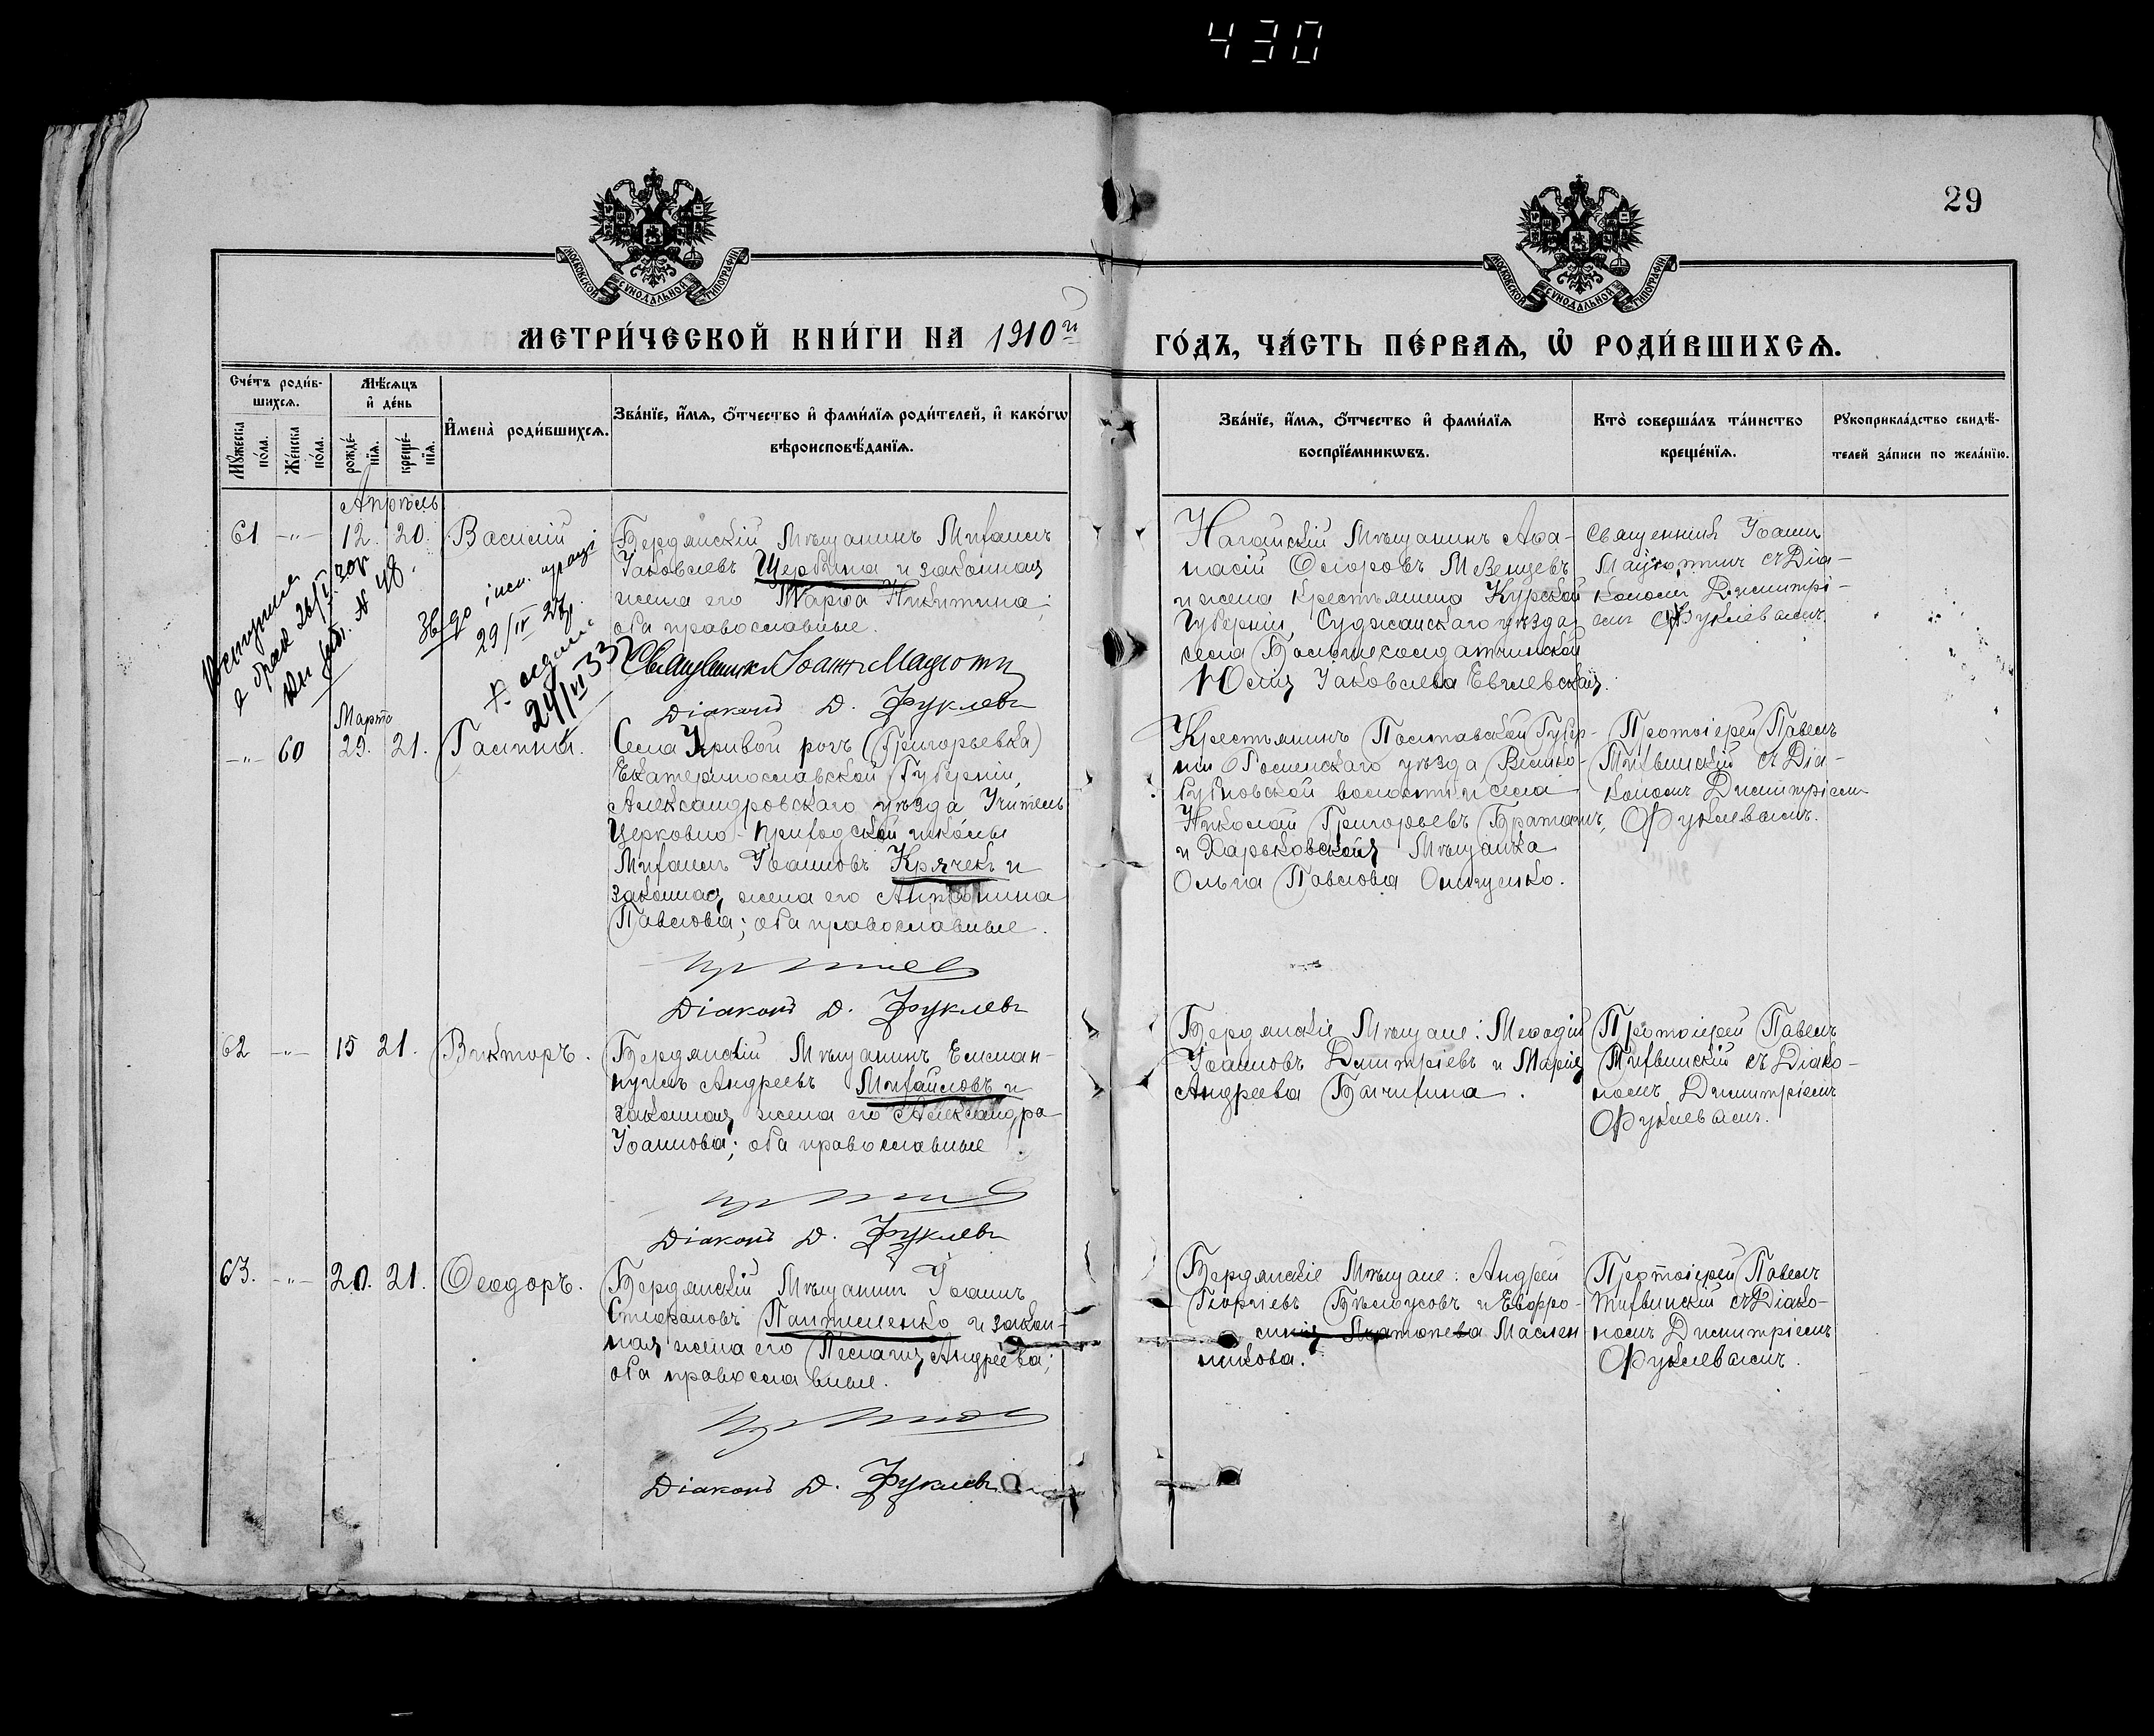 430
29
МОСКОВСКОЙ СѴНОДАЛЬНОЙ ТИПОГРАФІИ
МОСКОВСКОЙ СѴНОДАЛЬНОЙ ТИПОГРАФІИ
МЕТРИ́ЧЕСКОЙ КНИ́ГИ НА 1910й
ГО́ДЪ, ЧА́СТЬ ПЕ́РВАѦ, Ѡ҆ РОДИ́ВШИХСѦ.
Сче́тъ роди́в-
шихсѧ.
Мꙋ́жеска по́ла.
Же́нска по́ла.
Мѣ́сѧцъ
и҆ де́нь
рожде́-
нїѧ.
креще́-
нїѧ.
И҆мена̀ роди́вшихсѧ.
Зва́нїе, и҆́мѧ, ѻ҆́тчество и҆ фами́лїѧ роди́телей, и҆ како́гѡ
вѣроисповѣ́данїѧ.
Зва́нїе, и҆́мѧ, ѻ҆́тчество и҆ фами́лїѧ
воспрїе́мникѡвъ.
Кто̀ соверша́лъ та́инство
креще́нїѧ.
Рꙋкоприкла́дство свидѣ́-
телей за́писи по жела́нїю.
Апрѣль
61 -"- 12. 20. Василій
Бердянскій Мѣщанинъ Михаилъ
Іаковлевъ Щербина и законная
жена его Марѳа Никитина;
оба православные.
Священникъ Іоаннъ
Діаконъ Д. Фуклевъ
Вступила
в брак 26/I 30р
№ 48.
29/IV 27р
24/VI 33
Нагайскій Мѣщанинъ Аѳа-
насій Ѳеодоровъ
и жена крестьянина Курской
Губерніи, Суджанскаго уѣзда
села
Юлія Іаковлева
Священникъ Іоаннъ
съ Діа-
кономъ Димитрі-
емъ Фуклевымъ.
Марта
-"- 60 29. 21. Галина.
Села Кривой рогъ (Григорьевка)
Екатеринославской Губерніи,
Александровскаго уѣзда Учитель
Церковно-приходской школы
Михаилъ Іоанновъ Крячекъ и
законная жена его Антонина
Павлова; оба православные.
Діаконъ Д. Фуклевъ
Крестьянинъ Полтавской Губер-
ніи Роменскаго уѣзда Велико-
бубновской волости и села
Николай Григорьевъ
и Харьковская Мѣщанка
Ольга Павлова Онищенко.
Протоіерей Павелъ
Тихвинскій съ Діа-
кономъ Димитріемъ
Фуклевымъ.
62 -"- 15 21. Викторъ.
Бердянскій Мѣщанинъ Емман-
нуилъ Андреевъ Михайловъ и
законная жена его Александра
Іоаннова; оба православные
Діаконъ Д. Фуклевъ
Бердянскіе Мѣщане: Меѳодій
Іоанновъ Дмитріевъ и Марія
Андреева Бачихина.
Протоіерей Павелъ
Тихвинскій съ Діако-
номъ Димитріемъ
Фуклевымъ.
63. -"- 20. 21. Ѳеодоръ.
Бердянскій Мѣщанинъ Іоаннъ
Стефановъ Пантеленко и закон-
ная жена его Пелагія Андреева;
оба православные.
Діаконъ Д. Фуклевъ
Бердянскіе Мѣщане: Андрей
Георгіевъ Бѣлоусовъ и Евфро-
синія Платонева Маслен
никова.
Протоіерей Павелъ
Тихвинскій съ Діако-
номъ Димитріемъ
Фуклевымъ.